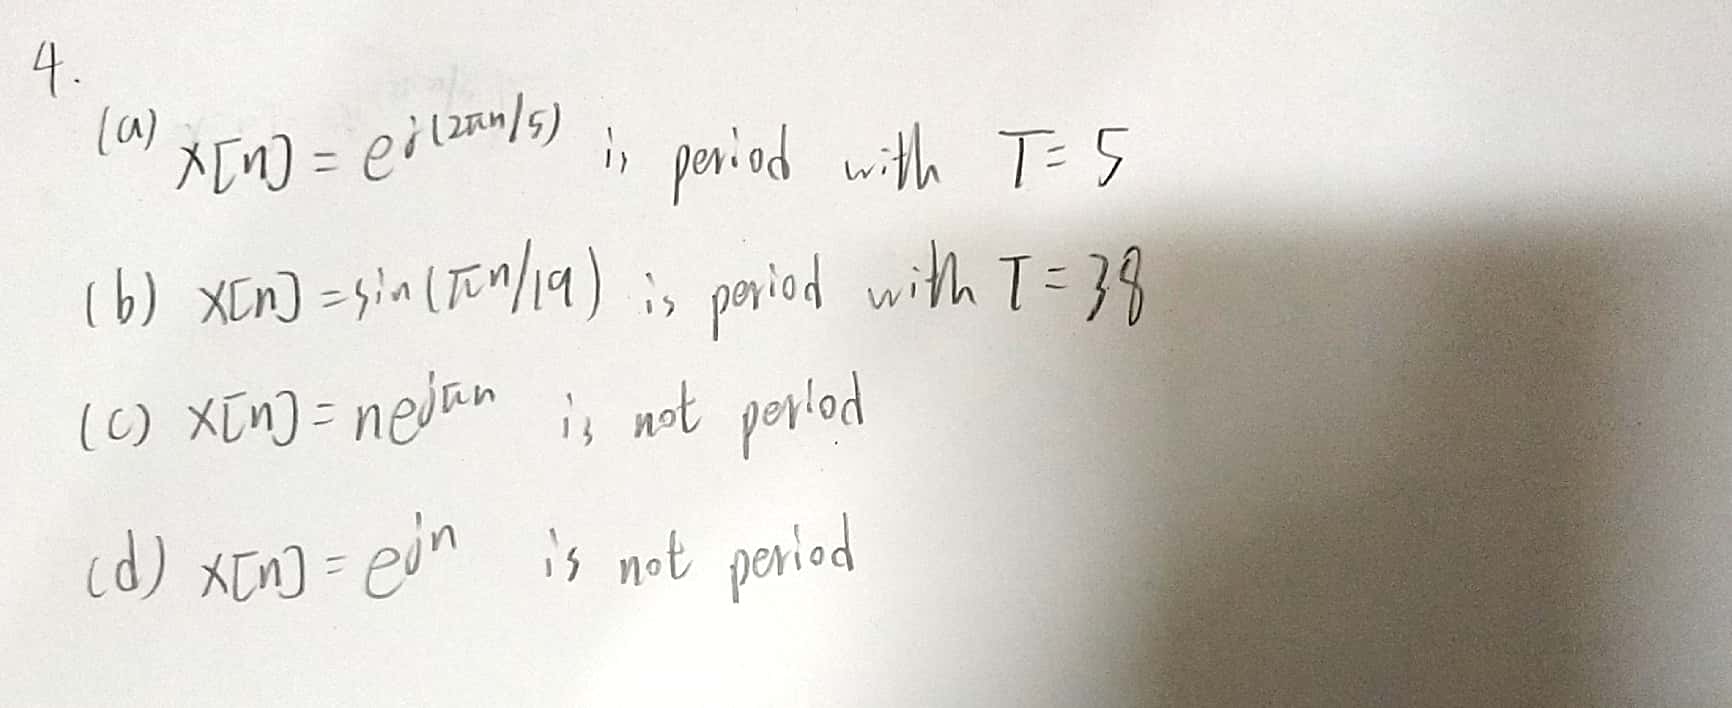 4.
(a) x[n] = e^{j(2πn/5)} is period with T = 5
(b) x[n] = sin(πn/19) is period with T = 38
(c) x[n] = ne^{jπn} is not period
(d) x[n] = e^{jn} is not period